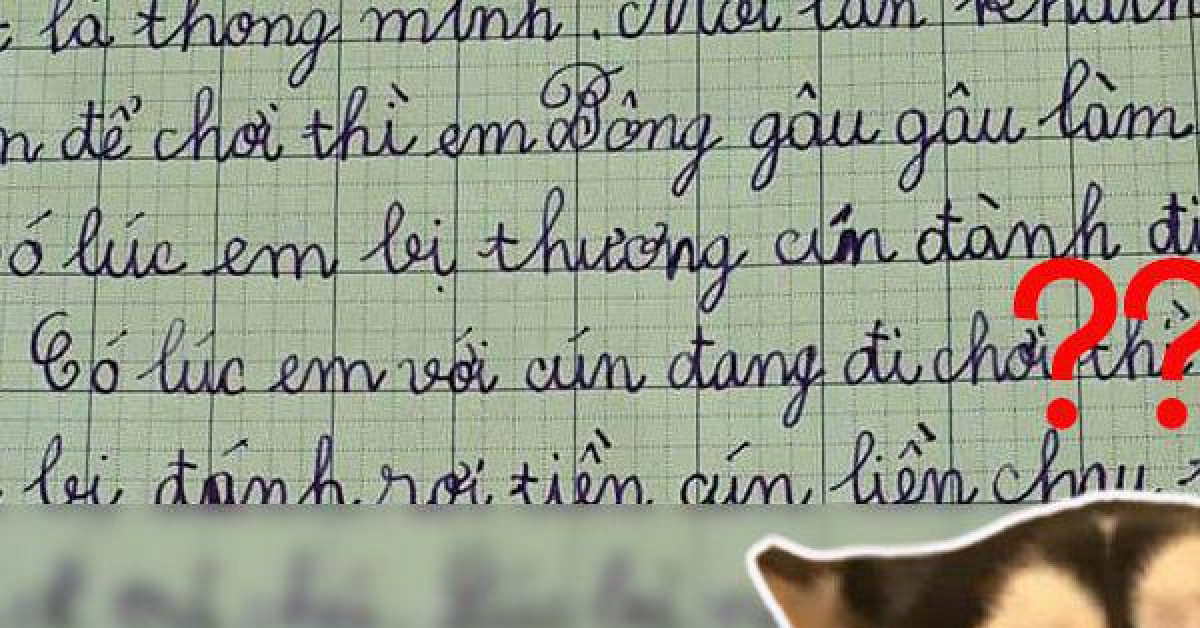 là thông minh. Mỗi lần
để chơi thì em Bông gâu gâu làm
ó lúc em bị thương cún đành đi
Có lúc em với cún đang đi chơi thì
bị đánh rơi tiền cún liền
??